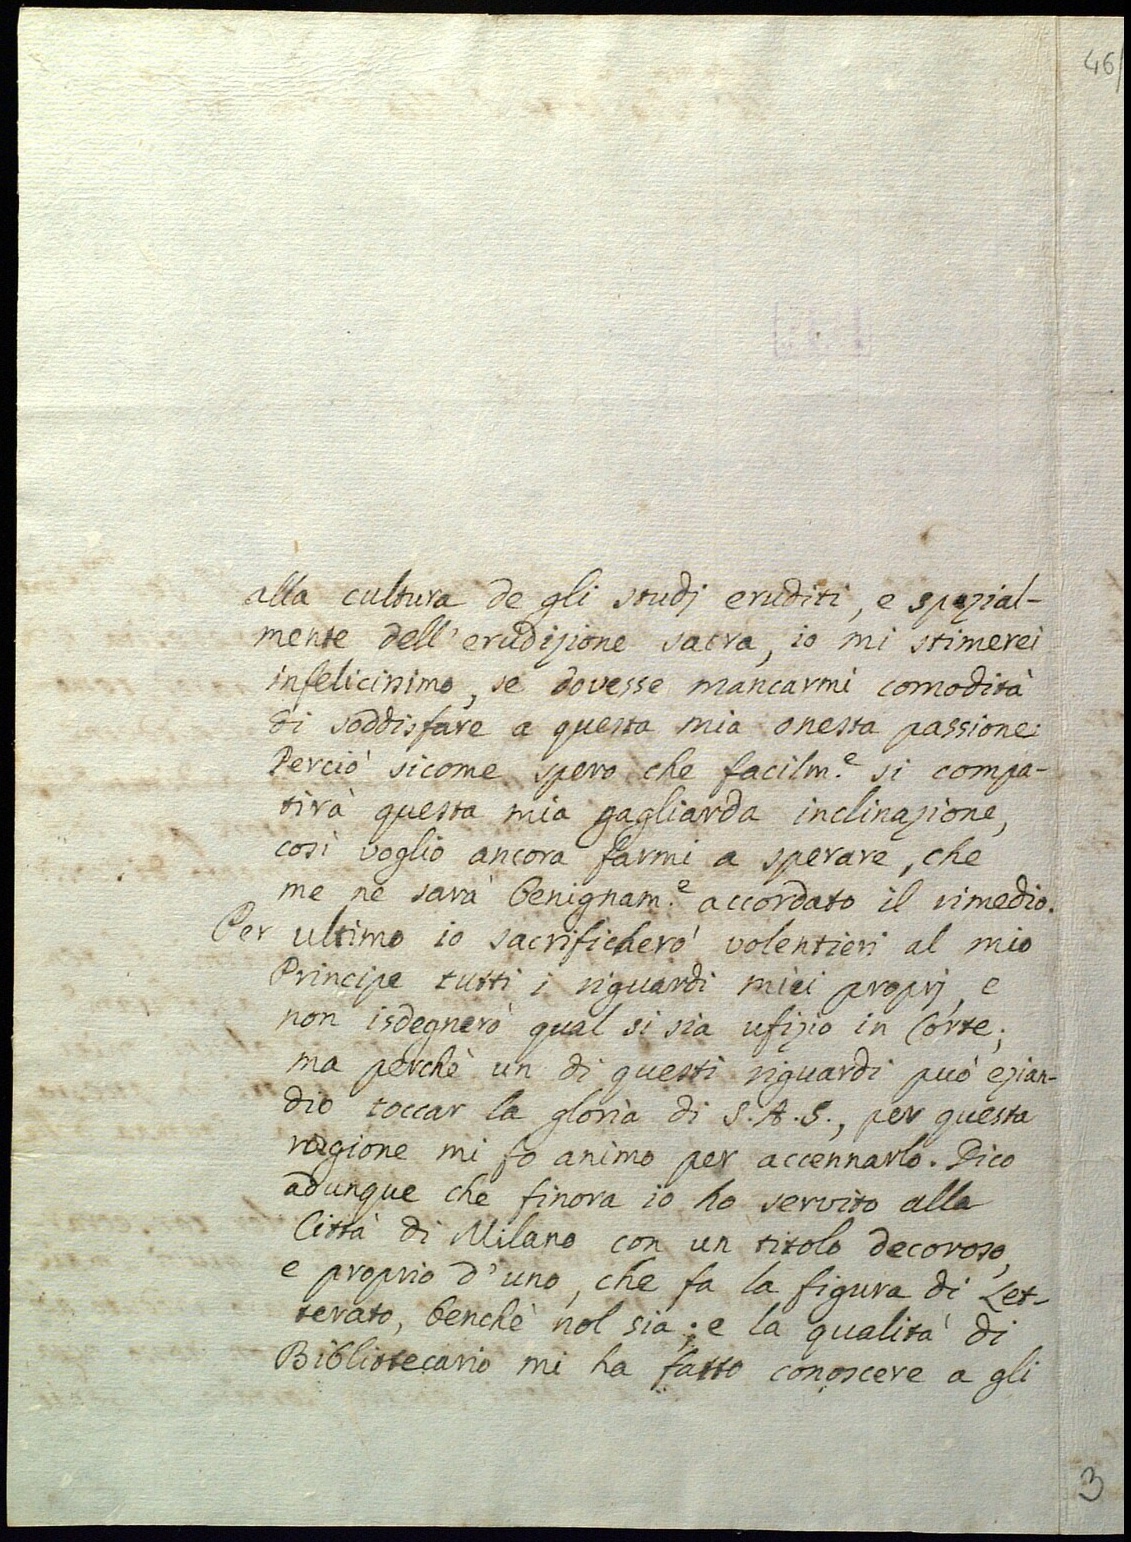 46
alla cultura de gli studj eruditi, e spezial-
mente dell'erudizione sacra, io mi stimerei
infelicissimo, se dovesse mancarmi comodità
di soddisfare a questa mia onesta passione:
Perciò sicome spero che facilm.e si compa-
tirà questa mia gagliarda inclinazione,
così voglio ancora farmi a sperare, che
me ne sarà benignam.e accordato il rimedio.
Per ultimo io sacrificherò volentieri al mio
Principe tutti i riguardi miei proprj, e
non isdegnerò qual si sia ufizio in Corte;
ma perchè un di questi riguardi può ezian-
dio toccar la gloria di S.A.S., per questa
ragione mi fo animo per accennarlo. Dico
adunque che finora io ho servito alla
Città di Milano con un titolo decoroso,
e proprio d'uno, che fa la figura di Let-
terato, benchè nol sia; e la qualità di
Bibliotecario mi ha fatto conoscere a gli
3